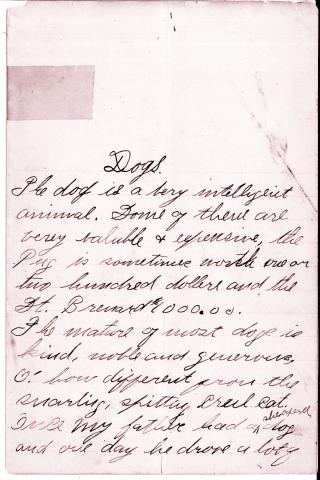 Dogs.
The dog is a very intelligent
animal. Some of there are
verey valuble & expensive, the
Pug is sometimes worth one or
two hundred dollers and the
St. Brenard $1000.00.
The nature of most dogs is
kind, noble and generous
O! how different from the
snarling, spitting, creul cat.
Once my father had a shepherd dog
and one day he drove a lot of